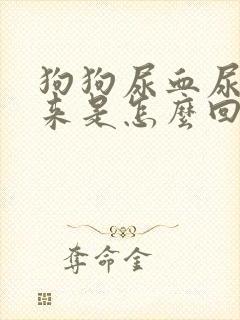 狗狗尿血尿
来是怎麼回
奪命金